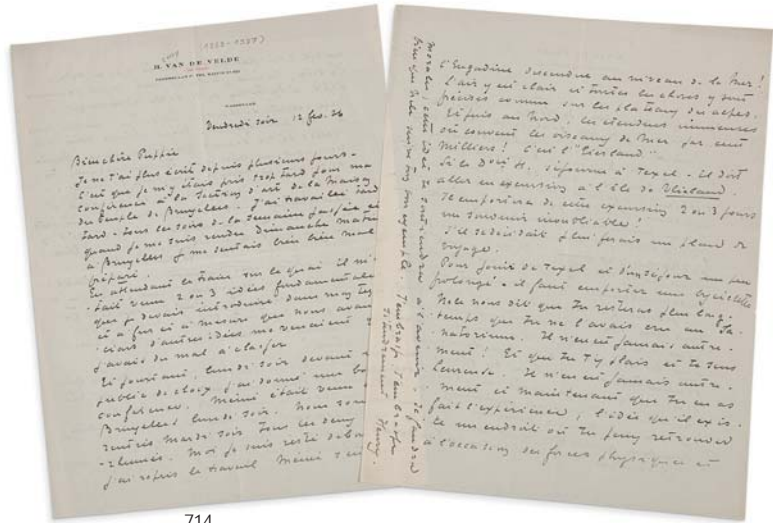 H. VAN DE VELDE
Vendredi soir 12 fev. 26
Bien chère Puppie
Je ne t'ai plus écrit depuis plusieurs jours -
c'est que je m'y étais pris trop tard pour ma
conférence à la Section d'art de la Maison
du Peuple de Bruxelles. J'ai travaillé tard
tard - tous les soirs de la semaine passée et
quand je me suis rendu Dimanche matin
à Bruxelles je me sentais bien bien mal
préparé.
En attendant le train sur le quai il m'
était venu 2 ou 3 idées fondamentales
que je devais introduire dans mon
et au fur et à mesure que nous
cions d'autres idées me venaient
j'avais du mal à classer
Et pourtant, lundi soir devant
public de choix j'ai donné une
conférence. Meini était venu
Bruxelles lundi soir. Nous
rentrés Mardi soir tous les deux
rhumés. Moi je suis resté
j'ai repris le travail Meini
l'Engadine descendue au niveau de la Mer!
L'air y est clair et toutes les choses y sont
précises comme sur les plateaux des alpes.
Et puis au Nord: les étendues immenses
où couvent les oiseaux de Mer par cent
milliers! C'est l'"Eierland"
Si le Dori H. séjourne à Texel - il doit
aller en excursion à l'île de Vlieland
Il emportera de cette excursion 2 ou 3 jours
un souvenir inoubliable!
S'il se décidait plus ferais un plan de
voyage.
Pour jouir de Texel et d'un séjour un peu
prolongé - il faut emporter une bicyclette
Nele nous dit que tu resteras plus long-
temps que tu ne l'avais cru au Sa-
natorium. Il n'en est jamais autre-
ment! Et que tu t'y plais et te sens
heureuse. Il n'en est jamais autre-
ment et maintenant que tu en as
fait l'expérience, l'idée qu'il exis-
te un endroit où tu peux retrouver
à l'occasion des forces physiques et
morales, cette idée te soutiendra à l'avenir. Il faudra
bien que Nele suive ton exemple. J'embrasse
tendrement Henry.
714